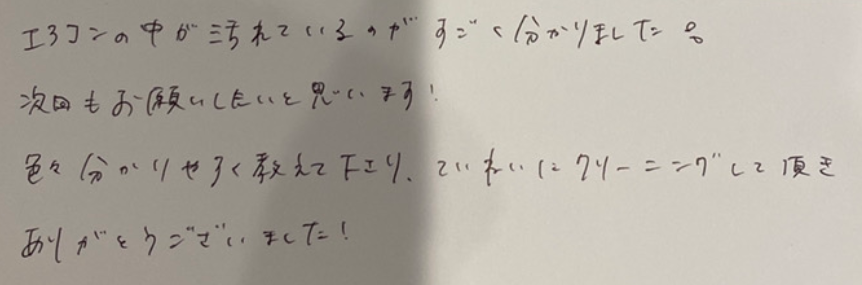 エアコンの中が汚れているのがすごく分かりました。
次回もお願いしたいと思います!
色々分かりやすく教えて下さり、ていねいにクリーニングして頂き
ありがとうございました!